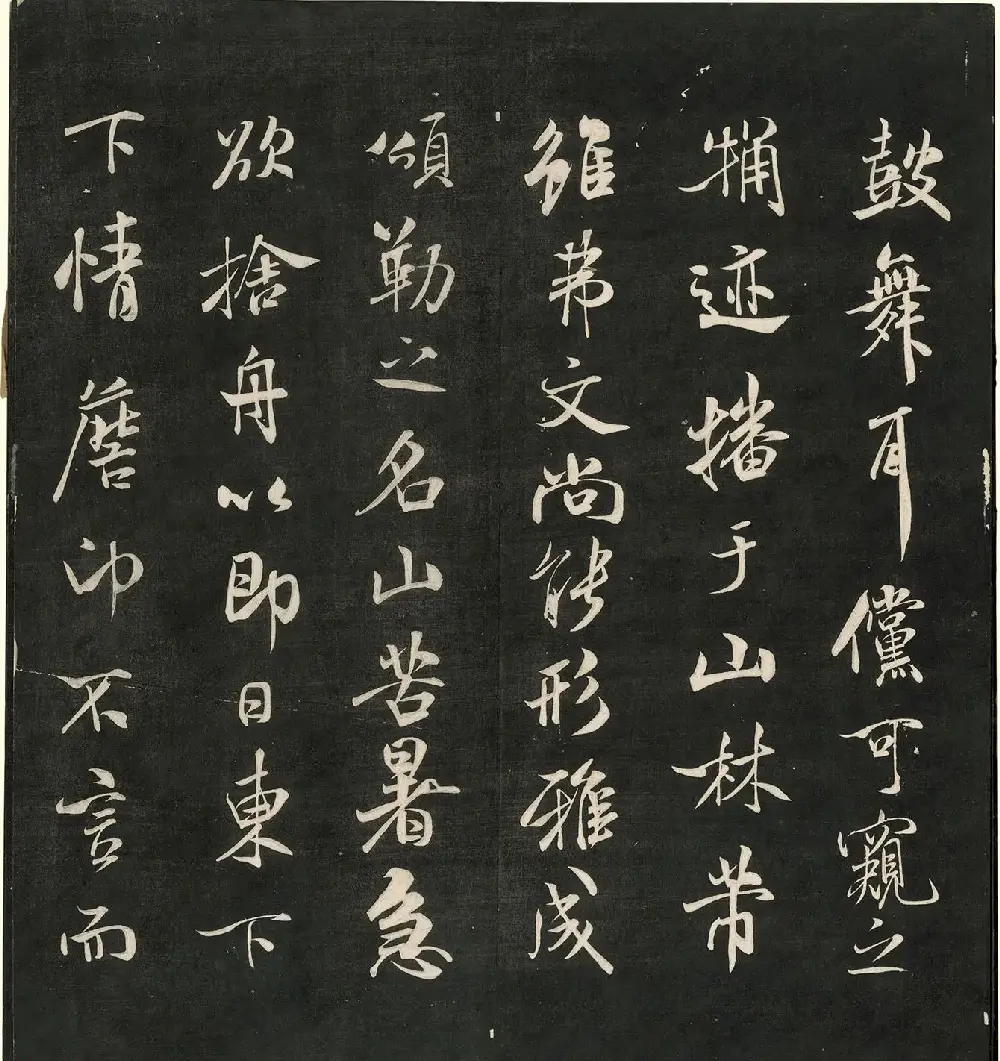 鼓舞耳儻可窺之
迹播于山林帶
雖弗文尚能形雅成
頌勒之名山苦暑急
欲捨舟以即日東下
下情詹仰不言而